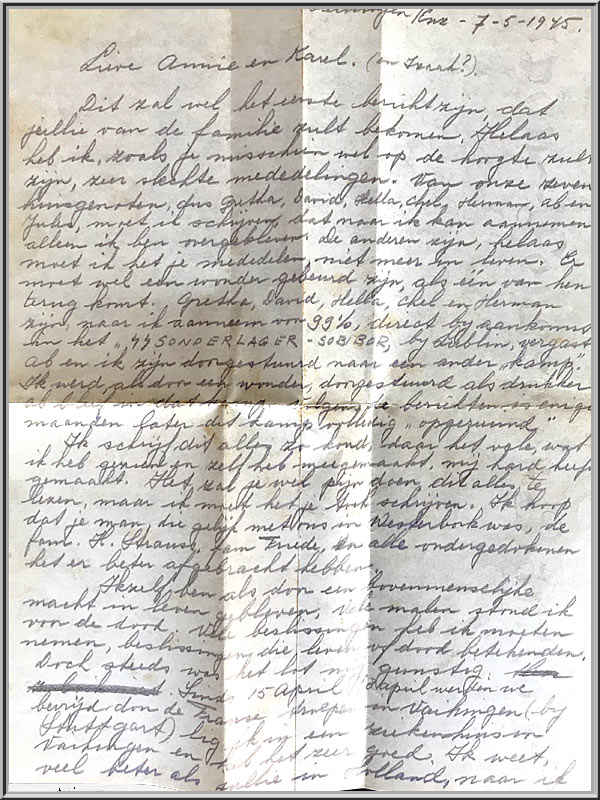 Vaihingen /Enz - 7-5-1945.
Lieve Annie en Karel. (en Izaak?).
Dit zal wel het eerste bericht zijn, dat
jullie van de familie zult bekomen. Helaas
heb ik, zoals je misschien wel op de hoogte zult
zijn, zeer slechte mededelingen. Van onze zeven
huisgenoten, dus Gretha, David, Hella, Chel, Herman, ab en
Jules, moet ik schrijven, dat naar ik kan aannemen
alleen ik ben overgebleven. De anderen zijn, helaas
moet ik het je mededelen, niet meer in leven. Er
moet wel een wonder gebeurd zijn, als één van hen
terug komt. Gretha, David, Hella, Chel en Herman
zijn, naar ik aanneem voor 99%, direct bij aankomst
in het „SS SONDERLAGER - SOBIBOR, bij Lublin, vergast
ab en ik zijn doorgestuurd naar een ander „kamp".
Ik werd, als door een wonder, doorgestuurd als drukker
ab bleef in dat kamp volgens de berichten is enige
maanden later dit kamp volledig „opgeruimd"
Ik schrijf dit alles zo koud, daar het vele, wat
ik heb gezien en zelf heb meegemaakt, mij hard heeft
gemaakt. Het zal je wel pijn doen, dit alles, te
lezen, maar ik moet het je toch schrijven. Ik hoop
dat je man, die gelijk met ons in Westerbork was, de
fam. H. Strauss, fam Friede, en alle ondergedokenen
het er beter afgebracht hebben.
Ikzelf ben als door een bovenmenschelijke
macht in leven gebleven. Vele malen stond ik
voor de dood. Vele beslissingen heb ik moeten
nemen, beslissingen die leven of dood betekenden.
Doch steeds was het lot mij gunstig.
Sinds 15 April April werden we
bevrijd door de Franse troepen in Vaihingen (bij
Stuttgart) lig ik in een ziekenhuis in
Vaihingen en heb het zeer goed. Ik weet,
veel beter als jullie in Holland, maar ik